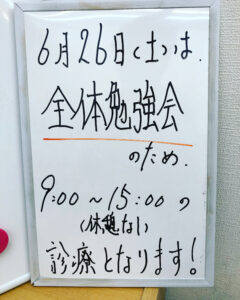 6月26日(土)は.
全体勉強会
のため.
9:00~15:00の
(休憩なし)
診療となります!